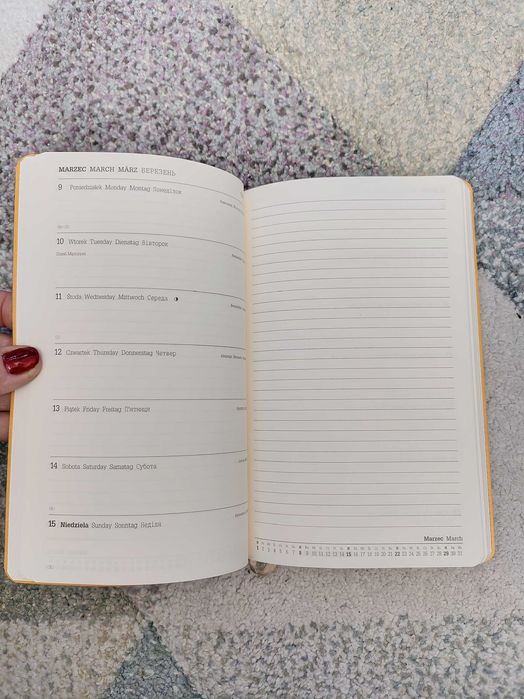 MARZEC MARCH MÄRZ БЕРЕЗЕНЬ
9 Poniedziałek Monday Montag Понеділок
10 Wtorek Tuesday Dienstag Вівторок
Dzień Mężczyzn
11 Środa Wednesday Mittwoch Середа
12 Czwartek Thursday Donnerstag Четвер
13 Piątek Friday Freitag П'ятниця
14 Sobota Saturday Samstag Субота
15 Niedziela Sunday Sonntag Неділя
Marzec March
1 2 3 4 5 6 7 8 9 10 11 12 13 14 15 16 17 18 19 20 21 22 23 24 25 26 27 28 29 30 31